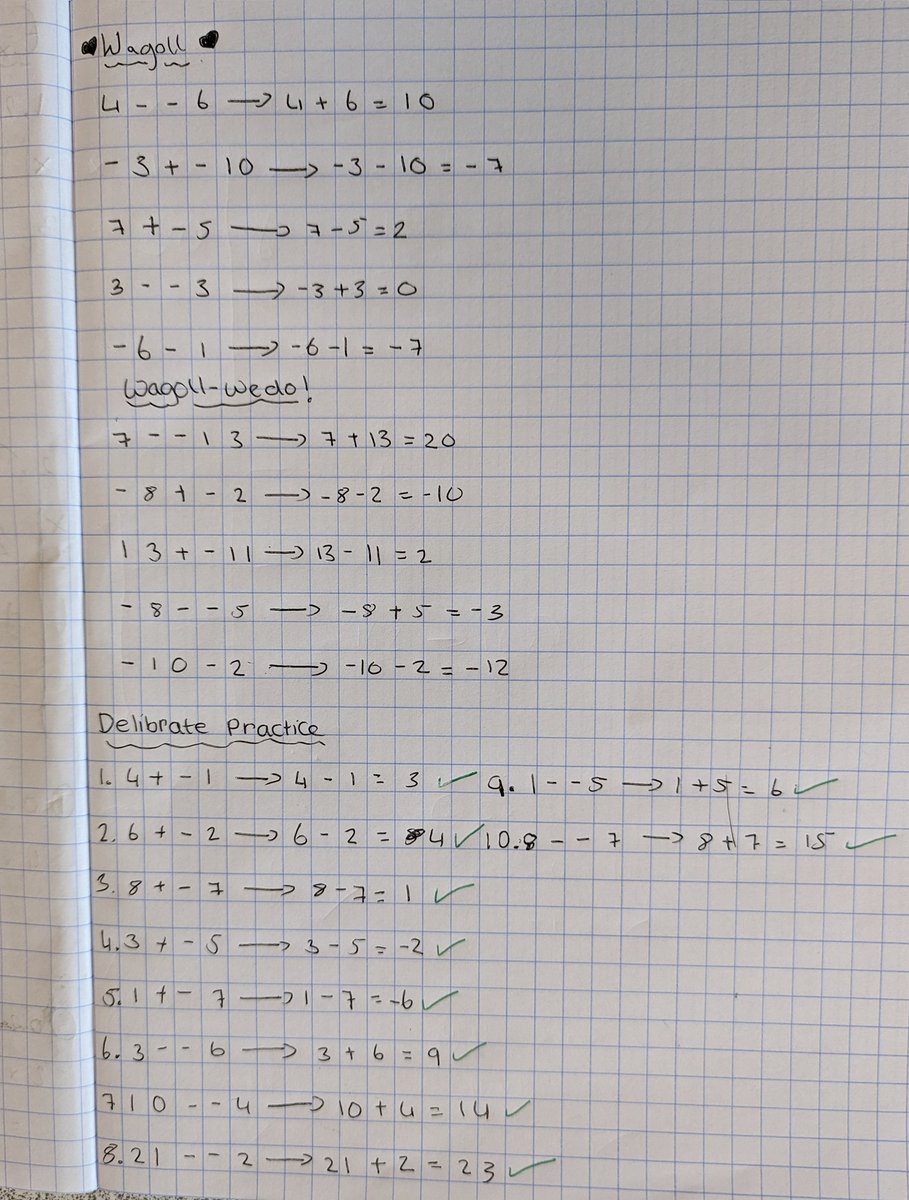 Wagoll
4 - - 6 → 4 + 6 = 10
- 3 + - 10 → -3 - 10 = - 7
7 + - 5 → 7 - 5 = 2
3 - - 3 → -3 + 3 = 0
- 6 - 1 → -6 - 1 = - 7
Wagoll-wedo!
7 - - 13 → 7 + 13 = 20
- 8 + - 2 → -8 - 2 = -10
13 + - 11 → 13 - 11 = 2
- 8 - - 5 → -8 + 5 = -3
- 10 - 2 → -10 - 2 = -12
Delibrate Practice
1. 4 + - 1 → 4 - 1 = 3 ✓ 9. 1 - - 5 → 1 + 5 = 6 ✓
2. 6 + - 2 → 6 - 2 = 4 ✓ 10. 8 - - 7 → 8 + 7 = 15 ✓
3. 8 + - 7 → 8 - 7 = 1 ✓
4. 3 + - 5 → 3 - 5 = -2 ✓
5. 1 + - 7 → 1 - 7 = -6 ✓
6. 3 - - 6 → 3 + 6 = 9 ✓
7 10 - - 4 → 10 + 4 = 14 ✓
8. 21 - - 2 → 21 + 2 = 23 ✓